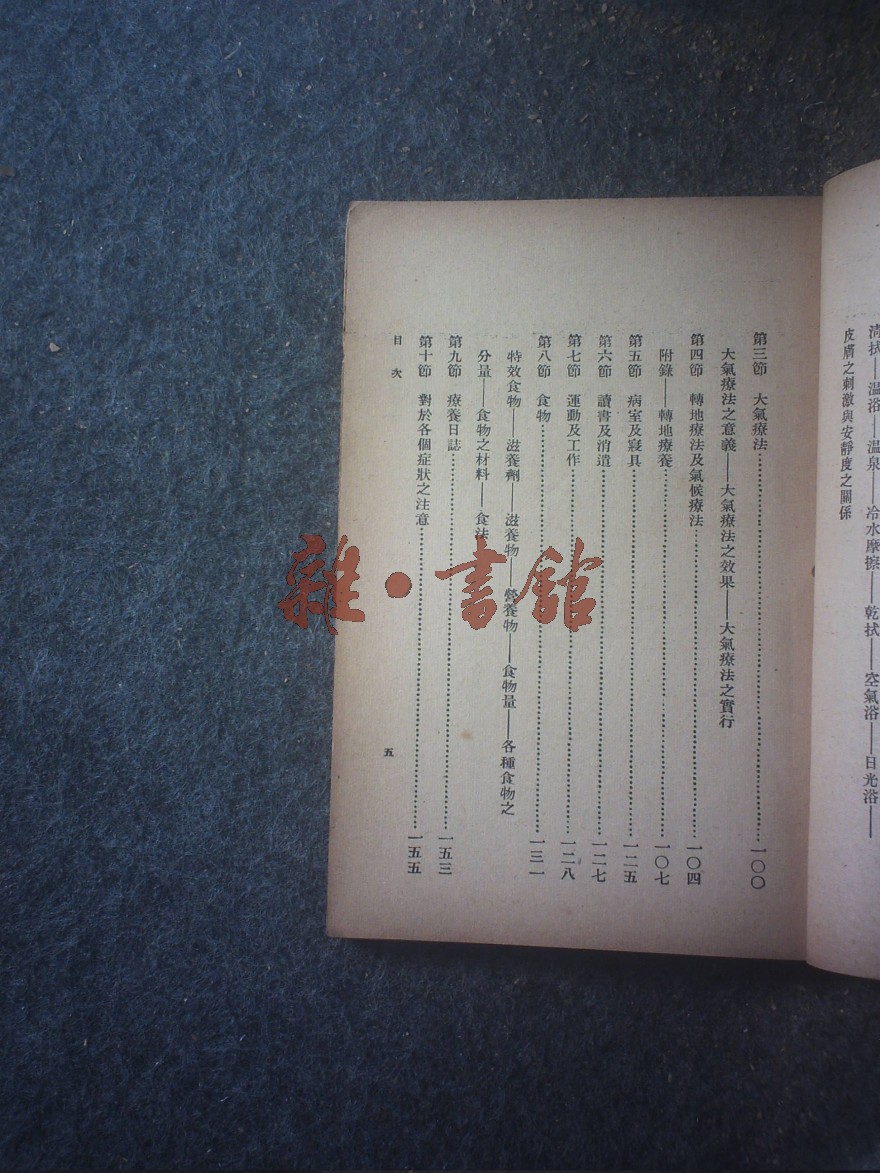 清拭——温浴——温泉——冷水摩擦——乾拭——空氣浴——日光浴——
皮膚之刺激與安靜度之關係
第三節 大氣療法…………一〇〇
大氣療法之意義——大氣療法之效果——大氣療法之實行
第四節 轉地療法及氣候療法…………一〇四
附錄——轉地療養…………一〇七
第五節 病室及寢具…………一二五
第六節 讀書及消遣…………一二七
第七節 運動及工作…………一二八
第八節 食物…………一三一
特效食物——滋養劑——滋養物——營養物——食物量——各種食物之
分量——食物之材料——食法
第九節 療養日誌…………一五三
第十節 對於各個症狀之注意…………一五五
目次
五
雜·書館